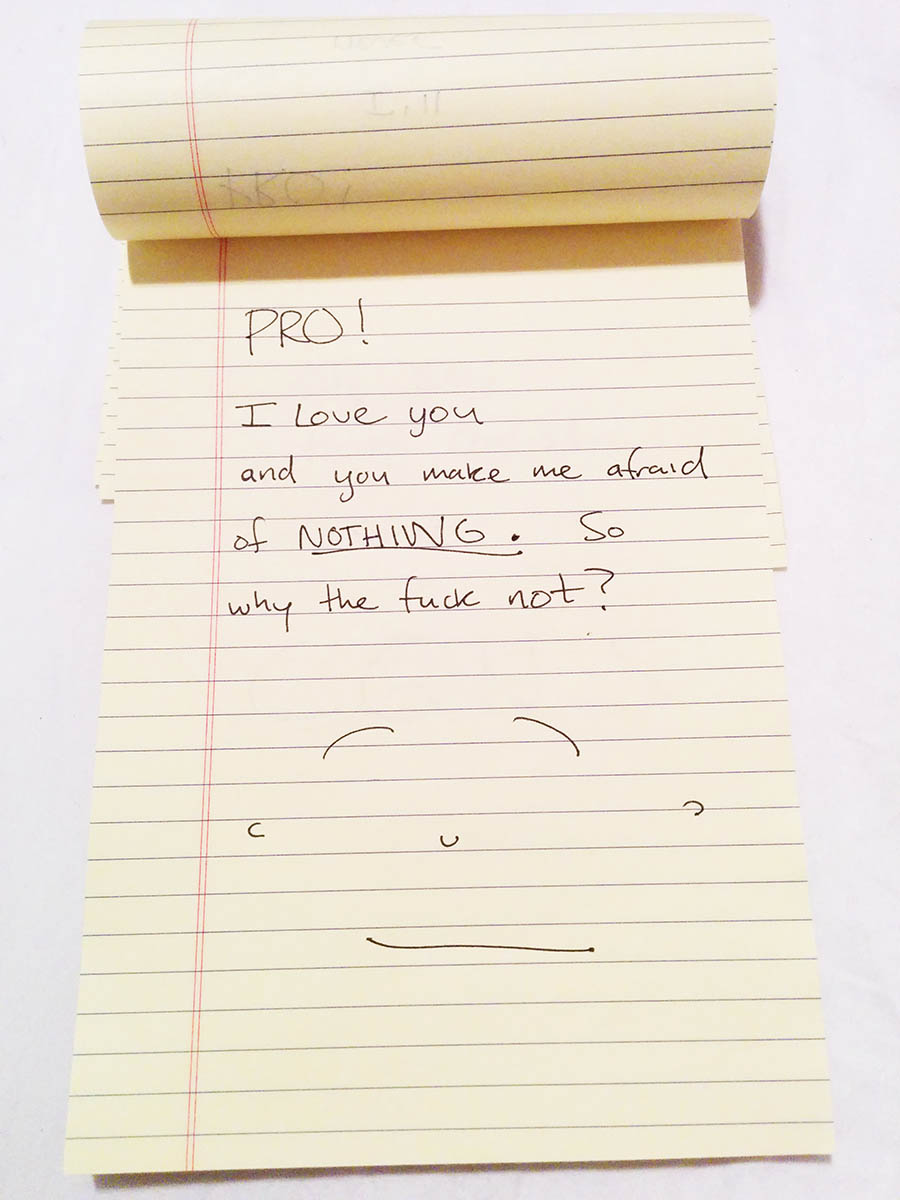 PRO!
I Love you
and you make me afraid
of NOTHING. So
why the fuck not?